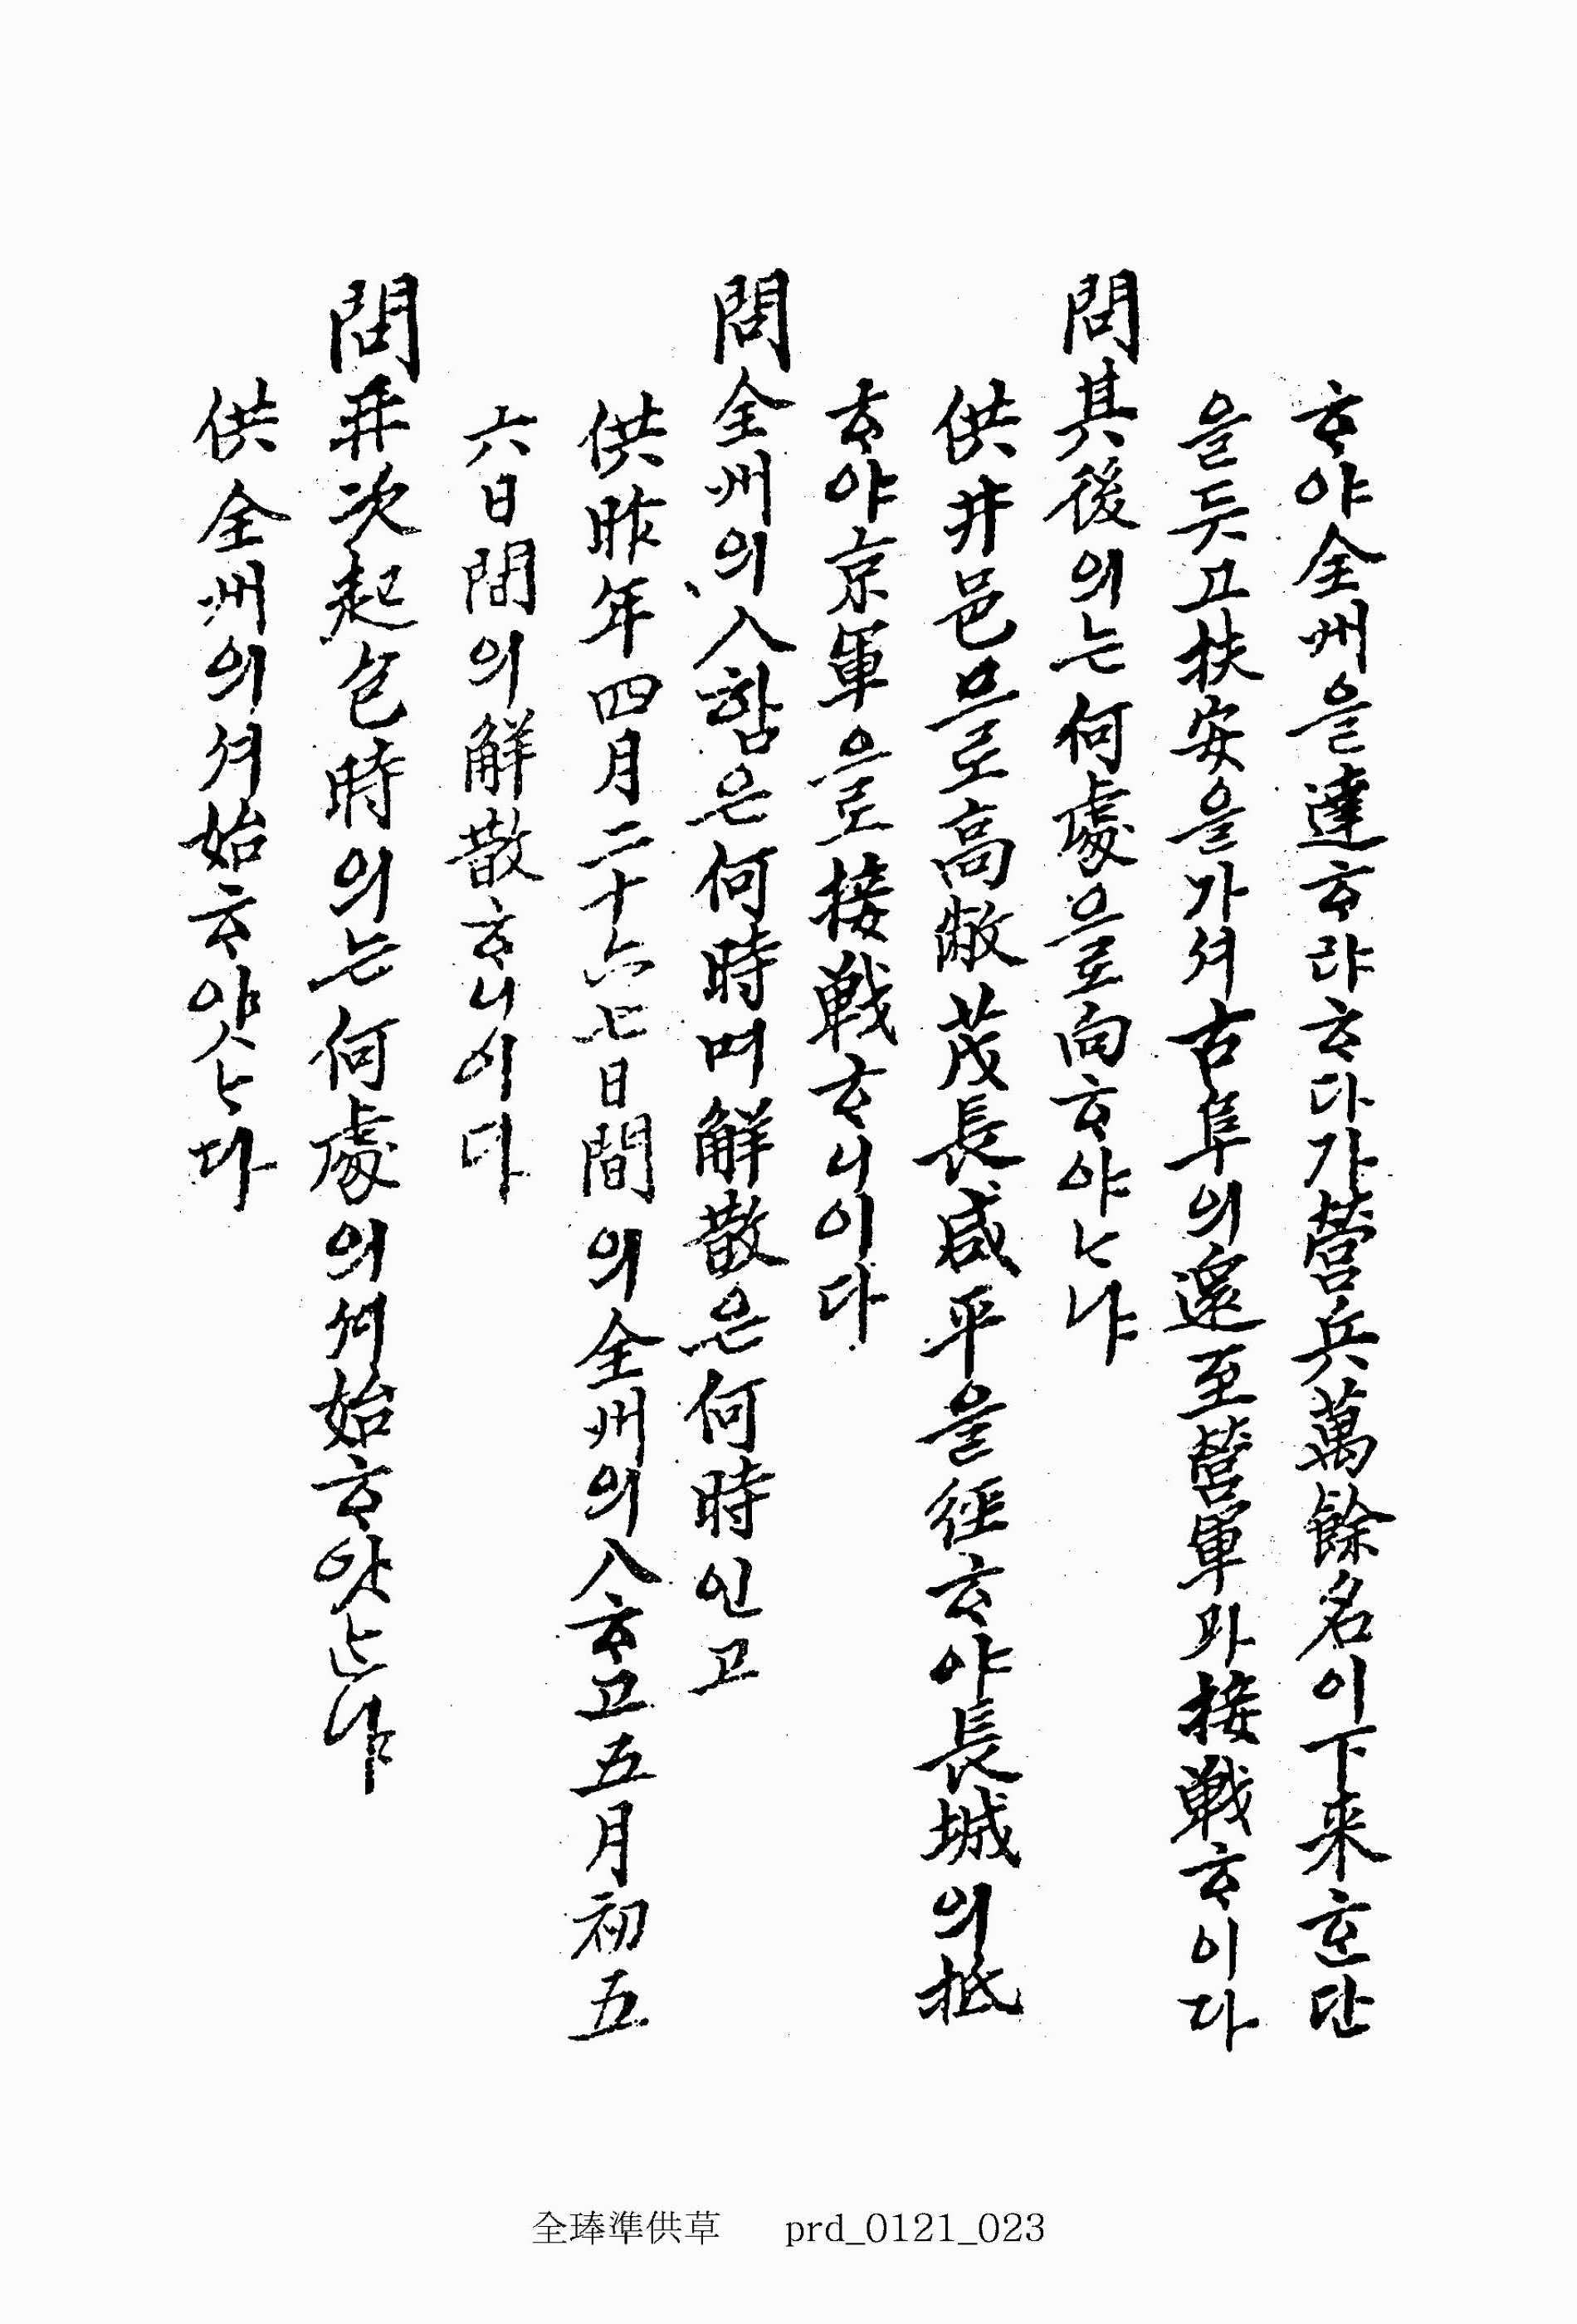 ᄒᆞ야全州을達ᄒᆞ랴ᄒᆞ다가營兵萬餘名이下来ᄒᆞᆫ단
을듯고扶安을가셔古阜의還至營軍과接戦ᄒᆞ이다
問其後의ᄂᆞᆫ何處으로向ᄒᆞ야ᄂᆞ냐
供井邑으로高敞茂長咸平을經ᄒᆞ야長城의抵
ᄒᆞ야京軍으로接戦ᄒᆞ니이다
問全州의入함은何時며解散은何時인고
供昨年四月二十六七日間의全州의入ᄒᆞ고五月初五
六日間의解散ᄒᆞ니이다
問再次起包時의ᄂᆞᆫ何處의셔始ᄒᆞ얏ᄂᆞ냐
供全州의셔始ᄒᆞ얏ᄂᆞ다
全琫準供草 prd_0121_023